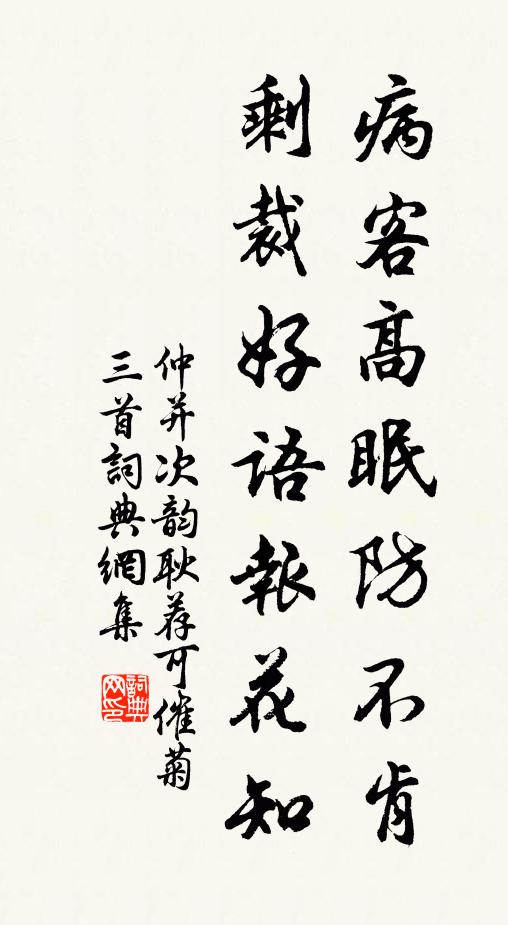 病客高眠防不肯
剩裁好語報花知
仲并次韵耿荐可催菊
三首詞典網集
詞典网印